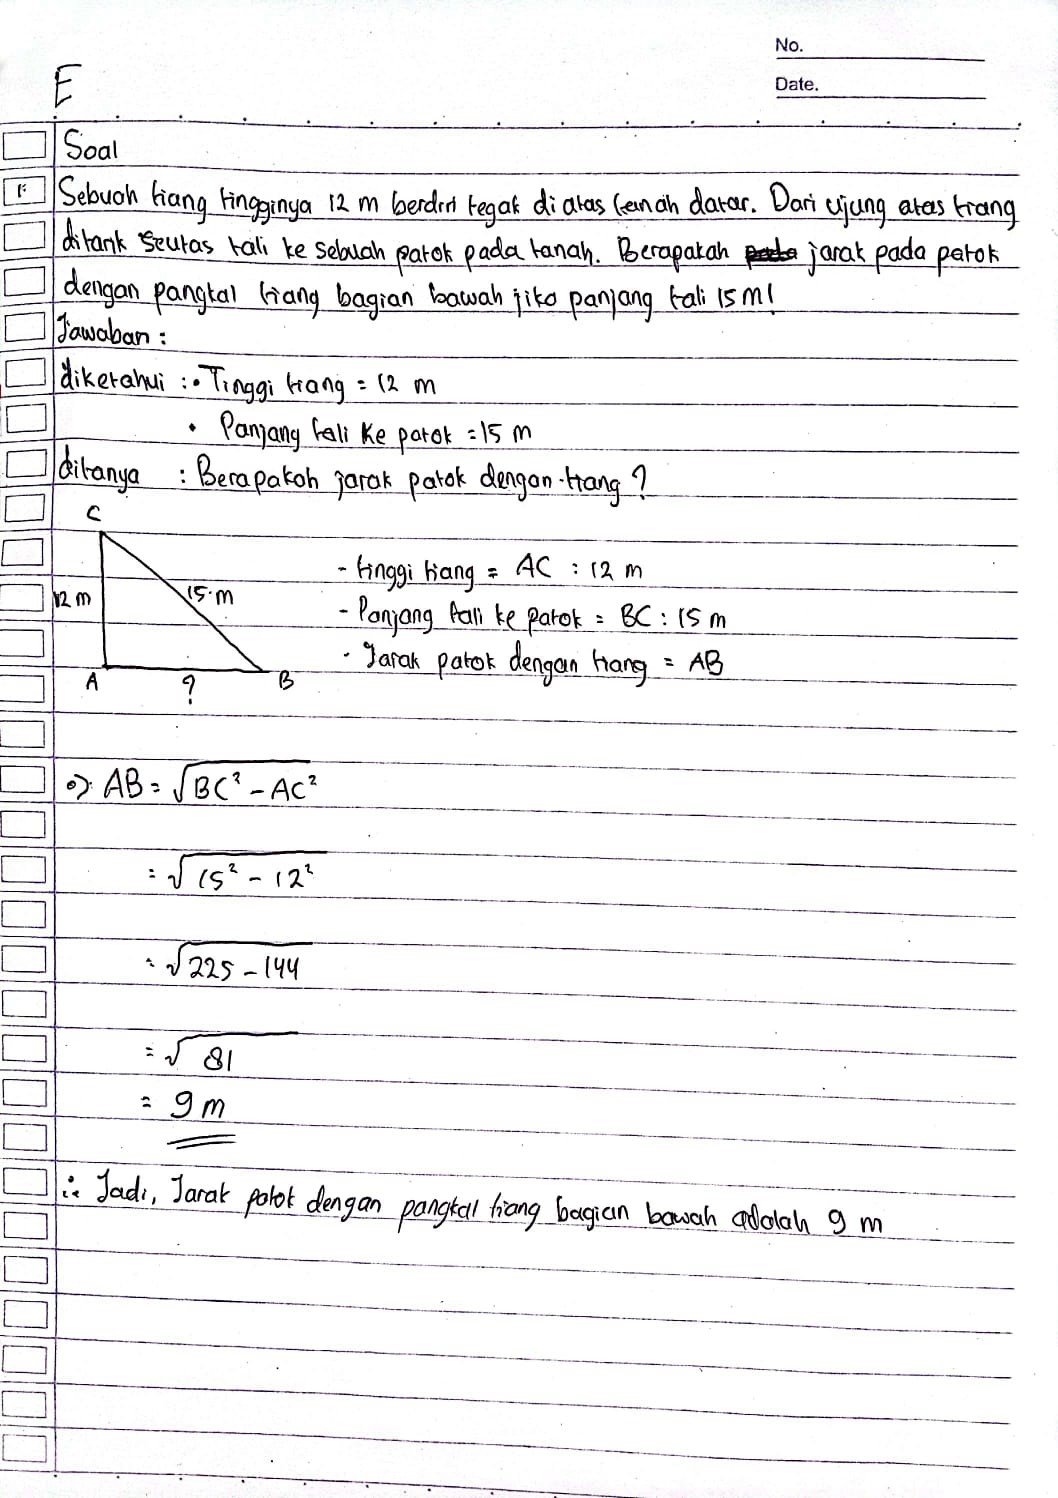 No.
Date.
E
Soal
1. Sebuah tiang tingginya 12 m berdiri tegak di atas tanah datar. Dari ujung atas tiang
ditarik seutas tali ke sebuah patok pada tanah. Berapakah jarak pada patok
dengan pangkal tiang bagian bawah jika panjang tali 15 m!
Jawaban :
diketahui : • Tinggi tiang = 12 m
• Panjang tali ke patok = 15 m
ditanya : Berapakah jarak patok dengan tiang ?
C
12 m
15 m
A ? B
- tinggi tiang = AC : 12 m
- Panjang tali ke patok = BC : 15 m
- Jarak patok dengan tiang = AB
AB = √BC² - AC²
= √15² - 12²
= √225 - 144
= √81
= 9 m
∴ Jadi, Jarak patok dengan pangkal tiang bagian bawah adalah 9 m